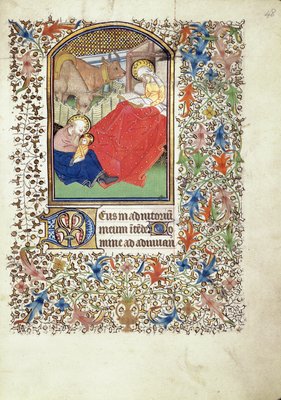 48
Eus in adiutoriū
meum ītēde Do
mine ad adiuuan